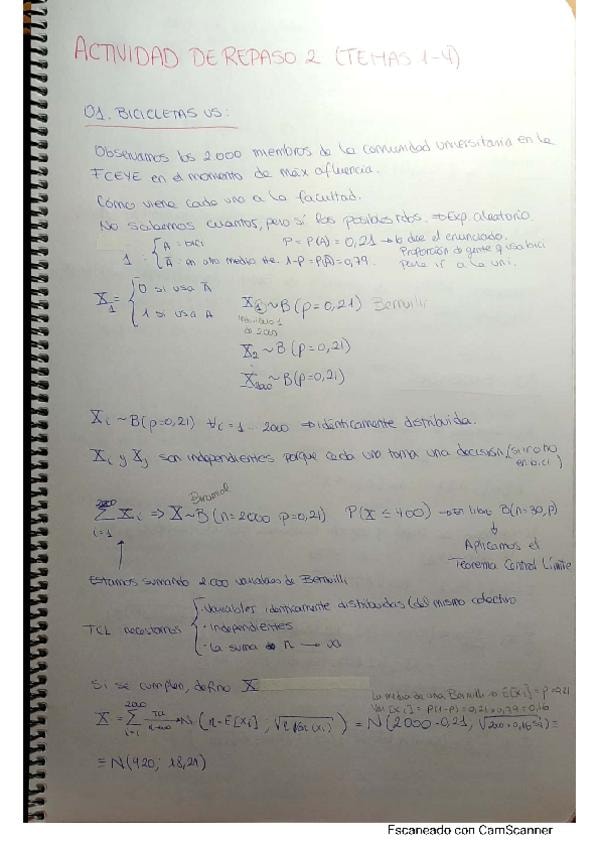 ACTIVIDAD DE REPASO 2 (TEMAS 1-4)
01. BICICLETAS US:
Observamos los 2000 miembros de la comunidad universitaria en la
FCEYE en el momento de máx afluencia.
Cómo viene cada uno a la facultad.
No sabemos cuantos, pero sí los posibles rdos. ⇒ Exp. aleatorio.
1 : { A = bici P = P(A) = 0,21 → lo dice el enunciado.
Ā = en otro medio tte. 1-p = P(Ā) = 0,79. Proporción de gente q usa bici
para ir a la uni.
X₁ = { 0 si usa Ā
1 si usa A
X₁ ~ B(p=0,21) Bernuilli
Individuo 1
de 2000
X₂ ~ B(p=0,21)
X₂₀₀₀ ~ B(p=0,21)
Xᵢ ~ B(p=0,21) ∀ᵢ = 1 ... 2000 ⇒ idénticamente distribuida.
Xᵢ y Xⱼ son independientes porque cada uno toma una decisión (si ir o no
en bici)
Binomial
2000
Σ Xᵢ ⇒ X ~ B(n=2000 p=0,21) P(X ≤ 400) → en libro B(n=30, p)
i=1
Aplicamos el
Teorema Central Límite
Estamos sumando 2000 variables de Bernuilli
TCL necesitamos { · Variables idénticamente distribuidas (del mismo colectivo
· Independientes
· La suma de n → ∞
Si se cumplen, defino X
La media de una Bernuilli es E[Xᵢ] = p = 0,21
Var [Xᵢ] = p(1-p) = 0,21 · 0,79 = 0,16
X = Σ Xᵢ TCL n→∞ N(n · E[Xᵢ], √n Var(Xᵢ)) = N(2000 · 0,21,
= N(420; 18,21)
Escaneado con CamScanner